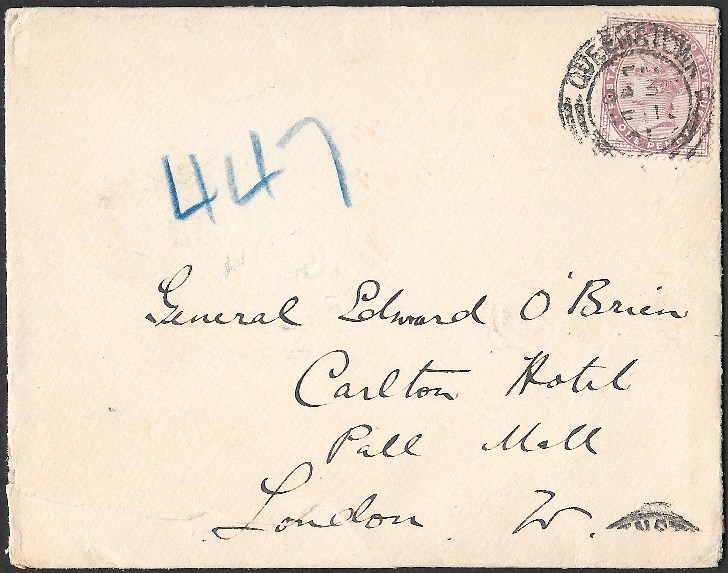 QUEENSTOWN
447
General Edward O'Brien
Carlton Hotel
Pall Mall
London W.